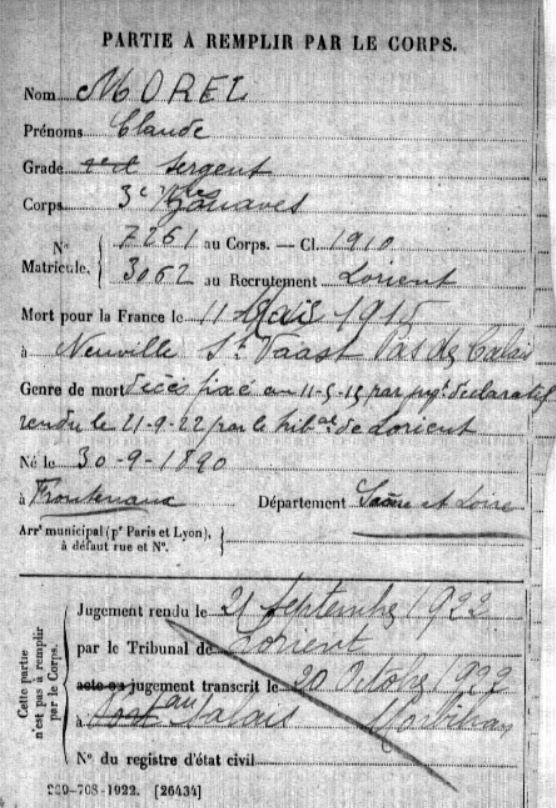 PARTIE À REMPLIR PAR LE CORPS.
Nom MOREL
Prénoms Claude
Grade Sergent
Corps 3e Zouaves
N° Matricule. 7261 au Corps. — Cl. 1910
3062 au Recrutement Lorient
Mort pour la France le 11 Mai 1915
à Neuville St Vaast Pas de Calais
Genre de mort décès fixé au 11-5-15 par jugt déclaratif
rendu le 21-9-22 par le tribal de Lorient
Né le 30-9-1890
à Frontenaux Département Saône et Loire
Arrt municipal (pr Paris et Lyon),
à défaut rue et N°.
Cette partie
n'est pas à remplir
par le Corps.
Jugement rendu le 21 Septembre 1922
par le Tribunal de Lorient
acte ou jugement transcrit le 20 Octobre 1922
à Palais Morbihan
N° du registre d'état civil
-708-1922. [26434]